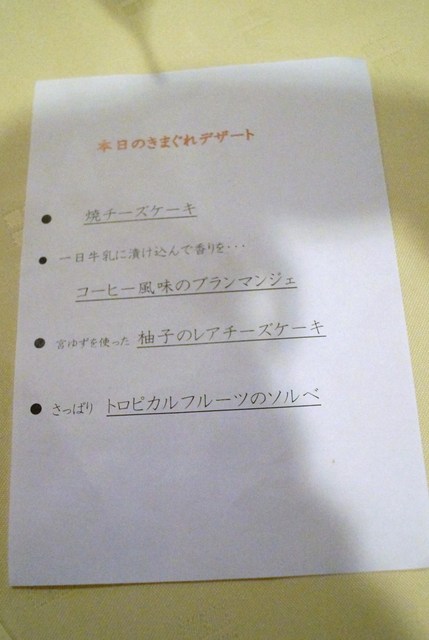 本日のきまぐれデザート
● 焼チーズケーキ
● 一日牛乳に漬け込んで香りを・・・
コーヒー風味のブランマンジェ
● 宮ゆずを使った 柚子のレアチーズケーキ
● さっぱり トロピカルフルーツのソルベ